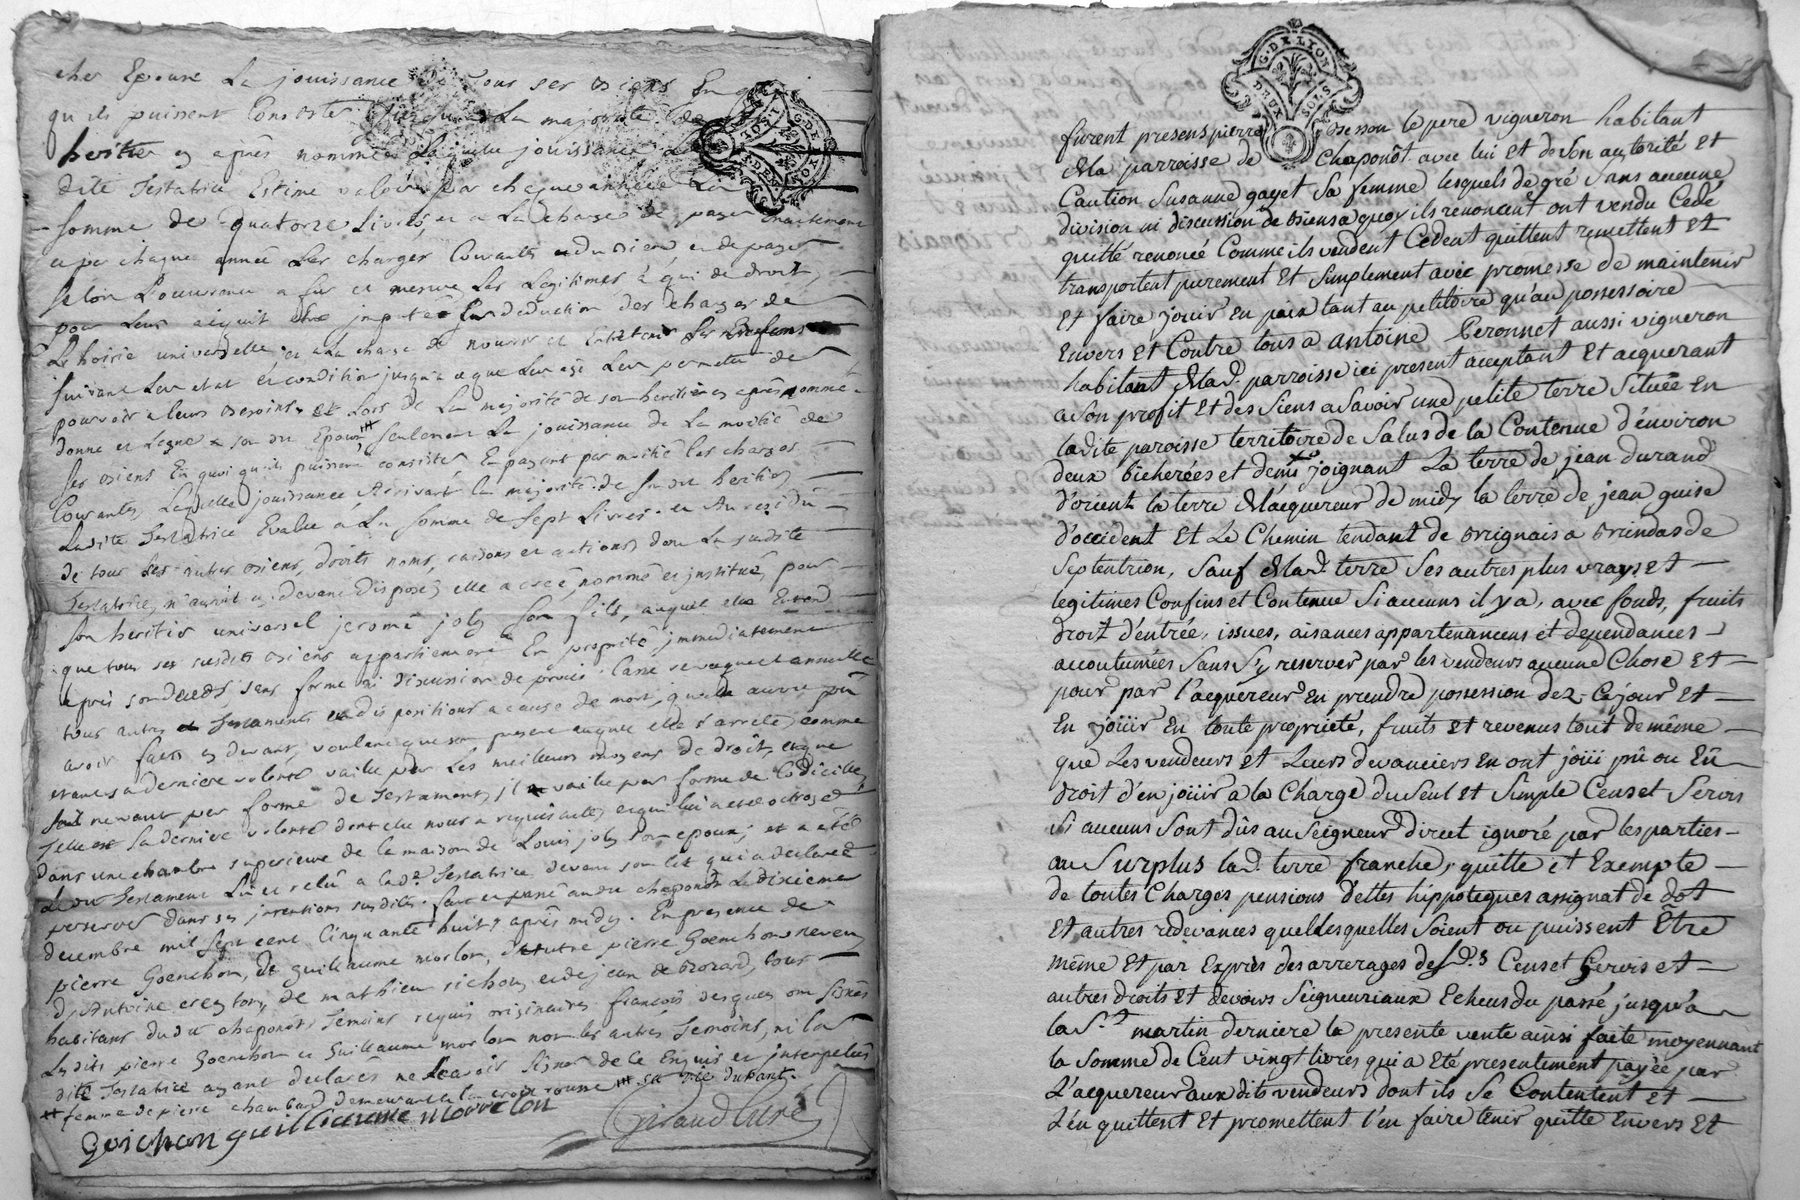 cher Epoux La jouissance de tous ses biens En quoi
qu'ils puissent Consister jusqu'a La majorité de
heritier cy après nommé Laquelle jouissance La
dite Testatrice Estime valoir par chaque année La
somme de Quatorze Livres, et a La charge de payer
et par chaque année Les charges Courantes dudit bien et de payer
selon L'ouverture a fur et mesure Les Legitimes a qui de droit,
pour Leur etre imputé En deduction des charges de
L'hoirie universelle, et a La charge de nourrir et Entretenir Les Enfans
suivant Leur etat et condition jusqu'a ce que Leur age Leur permette de
pourvoir a leurs besoins, et Lors de La majorité de son heritier cy après nommé
donne et Legue a son dit Epoux seulement La jouissance de La moitié de
ses biens En quoi qu'ils puissent consister, En payant par moitié les charges
Courantes, Laquelle jouissance Arrivant la majorité de son dit heritier
Ladite Testatrice Evalue a La somme de Sept Livres. et Au residu
de tous ses autres biens, droits noms, raisons et actions dont La susdite
Testatrice n'auroit cy devant disposé, elle a creé, nommé et institué, pour
son heritier universel jerome joly son fils, auquel elle Entend
que tous ses susdits biens appartiennent En proprieté immediatement
après son deceds sans forme ni discussion de procès. Casse revoque et annulle
tous autres Testaments et dispositions a cause de mort, quelle auroit pû
avoir faits cy devant, voulant que son present auquel elle s'arrete, comme
etant sa derniere volonté vaille par Les meilleurs moyens de droit, et que
ne vaut par forme de Testament, il vaille par forme de Codicille,
Telle est sa derniere volonté dont elle nous a requis acte, et qui lui a eté octroyé
dans une chambre superieure de la maison de Louis joly son epoux; et a eté
Le dit Testament Lu et relû a lad.e Testatrice devant son lit qui a declaré
perseverer dans ses intentions susdites. fait et passé audit chaponôt Le dixieme
decembre mil sept cent Cinquante huit, après midy. En presence de
pierre Goenchon, de guillaume morlon, d'autre pierre Goenchon neveu,
d'Antoine creyton, de mathieu sichon, et de jean de brozard, tous
habitans dudit chaponôt, Temoins requis originaires françois desquels ont signés
Lesdits pierre Goenchon et Guillaume morlon non les autres Temoins, ni la
dite Testatrice ayant declarés ne scavoir signer de ce Enquis et interpellés
femme de pierre chambard demeurant a la croix rousse sa vie durant.
Goichon guilliaume morrelon
Giraud Curé
G. DE LYON
DEUX SOLS
furent presens pierre besson le pere vigneron habitant
En la parroisse de Chaponôt avec lui et de son autorité et
Caution Susanne gayet Sa femme lesquels de gré Sans aucune
division ni discussion de biens a quoy ils renoncent ont vendu Cedé
quitté renoncé Comme ils vendent Cedent quittent remettent et
transportent purement Et Simplement avec promesse de maintenir
Et faire jouir En paix tant au petitoire qu'au possessoire
Envers Et Contre tous a antoine Peronnet aussi vigneron
habitant En lad. parroisse ici present acceptant Et acquerant
a Son profit Et des Siens a Savoir une petite terre Située En
ladite paroisse territoire de Salus de la Contenue d'environ
deux bicherées et demi joignant La terre de jean durand
d'orient la terre de l'acquereur de midy la terre de jean guise
d'occident Et Le Chemin tendant de brignais a brindas de
Septentrion, Sauf de lad. terre Ses autres plus vrays et
legitimes Confins et Contenue Si aucuns il y a, avec fonds, fruits
droit d'entrée, issues, aisances appartenances et dependances
accoutumées Sans S'y reserver par les vendeurs aucune Chose Et
pour par l'acquereur En prendre possession dez Ce jour Et
En joüir En toute proprieté, fruits Et revenus tout de même
que Les vendeurs Et Leurs devanciers En ont joüi pû ou Eû
droit d'en joüir a la Charge du Seul Et Simple Cens et Servis
Si aucuns Sont dûs au Seigneur direct ignoré par les parties
au Surplus lad. terre franche, quitte et Exempte
de toutes Charges pensions dettes hippoteques assignat de dot
Et autres redevances quellesquelles Soient ou puissent Être
même Et par Exprès des arrerages desd.s Cens et Servis et
autres droits Et devoirs Seigneuriaux Echeus du passé jusqu'a
la S.t martin derniere la presente vente ainsi faite moyennant
la Somme de Cent vingt livres qui a eté presentement payée par
L'acquereur auxdits vendeurs dont ils Se Contentent Et
L'en quittent Et promettent l'en faire tenir quitte Envers Et